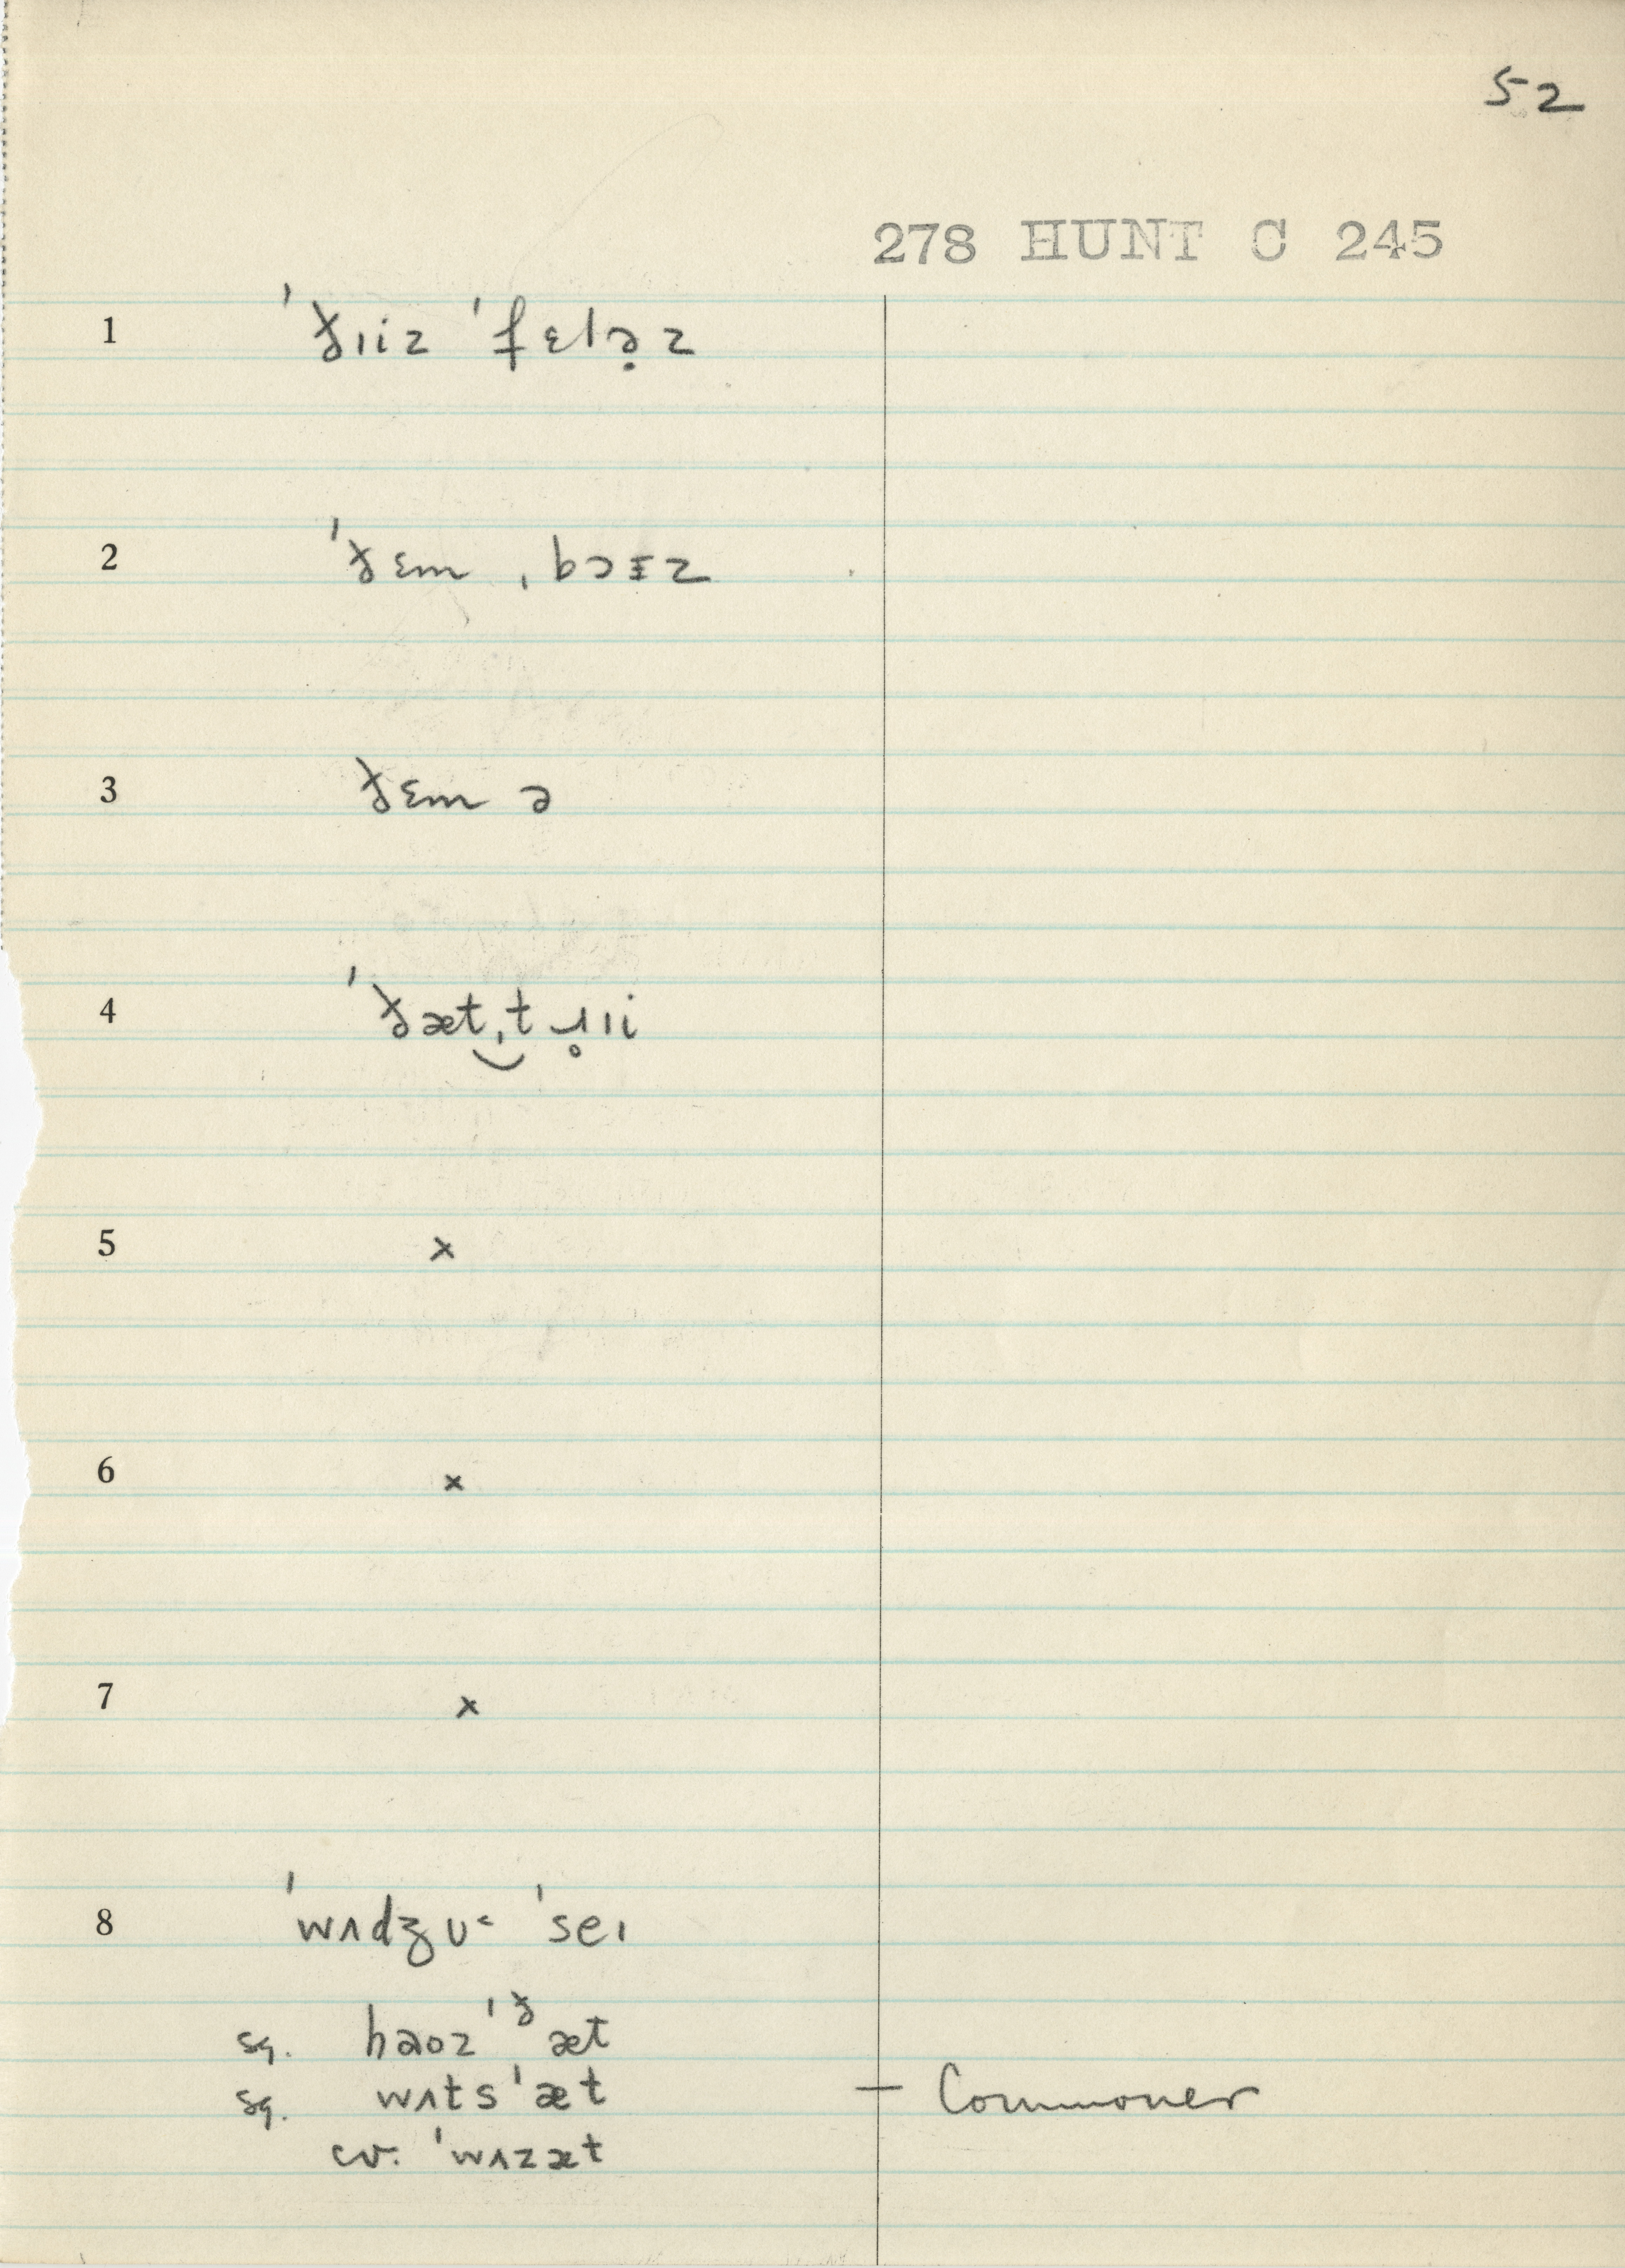 52
278 HUNT C 245
1 ˈð̵ɪiz ˈfɛlə̣z
2 ˈðɛm ˌbɔɪz
3 ðɛm ə
4 ˈðæt‿ˌtɹ̥ɪi
5 ×
6 ×
7 ×
8 ˈwʌdʒʊ˂ ˈseɪ
sg. haʊz ˈðæt
sg. wʌts ˈæt – Commoner
cv. ˈwʌzæt